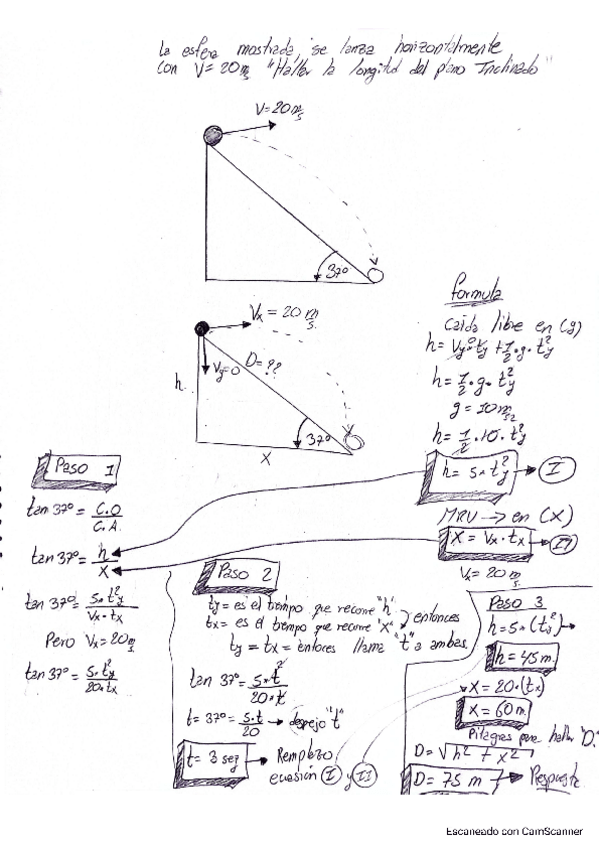 La esfera mostrada, se lanza horizontalmente
con V=20 m/s "Hallar la longitud del plano Inclinado"
V=20 m/s
37º
Vx = 20 m/s
Vy=0
D=??
h
37º
X
formula
Caida libre en (y)
h= Vy°ty + 1/2·g·ty²
h= 1/2·g·ty²
g = 10 m/s²
h= 1/2·10·ty²
h= 5*ty² → I
MRU → en (X)
X = Vx·tx → II
Vx = 20 m/s
Paso 1
tan 37º = C.O/C.A.
tan 37º = h/X
tan 37º = 5·ty²/Vx·tx
Pero Vx=20 m/s
tan 37º = 5·ty²/20·tx
Paso 2
ty= es el tiempo que recorre "h"
tx= es el tiempo que recorre "X" entonces
ty = tx = entonces llama "t" a ambas.
tan 37º = 5*t²/20*t
t= 37º = 5·t/20 → despejo "t"
t= 3 seg → Remplazo
ecuasión I y II
Paso 3
h= 5*(ty²) →
h= 45 m
X = 20·(tx)
X = 60 m
Pitagras para hallar "D."
D = √h² + x²
D = 75 m → Respuesta
Escaneado con CamScanner